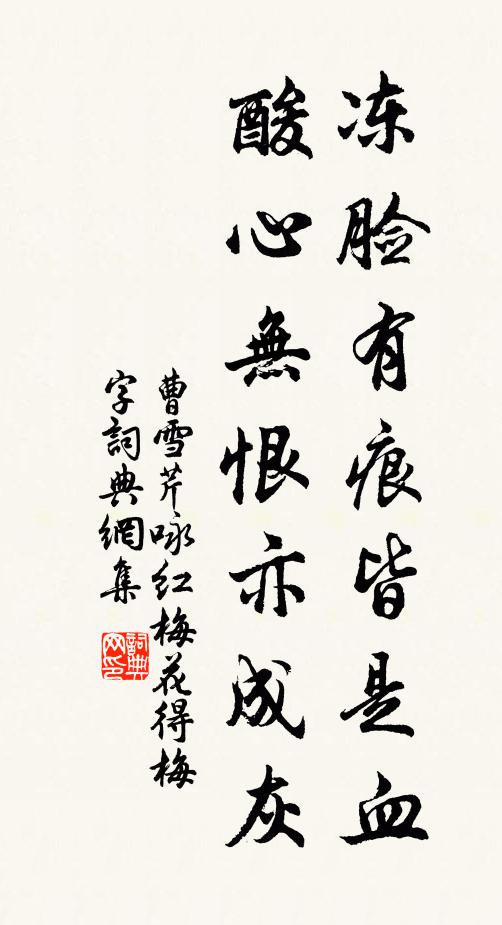 冻脸有痕皆是血
酸心無恨亦成灰
曹雪芹咏红梅花得梅
字詞典網集
詞典网印